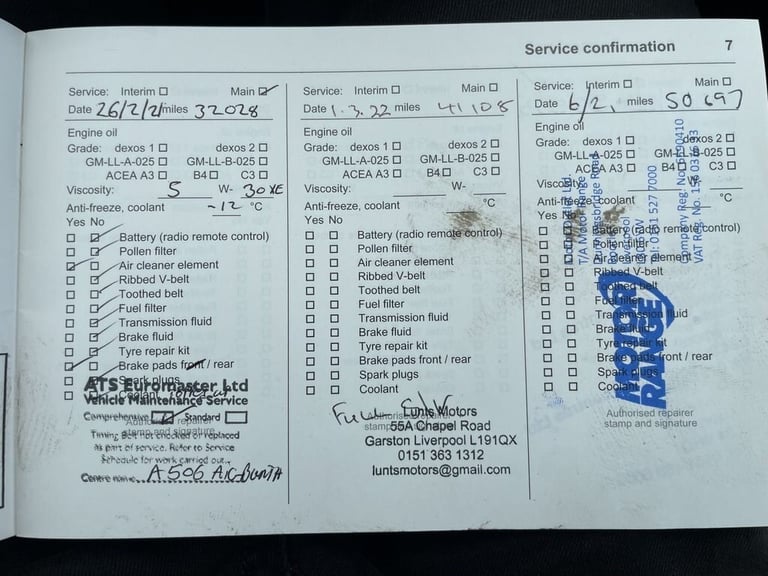 Service confirmation 7
Service: Interim ☐ Main ☑
Date 26/2/21 miles 32028
Engine oil
Grade: dexos 1 ☐ dexos 2 ☐
GM-LL-A-025 ☐ GM-LL-B-025 ☐
ACEA A3 ☐ B4 ☐ C3 ☐
Viscosity: 5 W- 30
Anti-freeze, coolant -12 °C
Yes No
Battery (radio remote control)
Pollen filter
Air cleaner element
Ribbed V-belt
Toothed belt
Fuel filter
Transmission fluid
Brake fluid
Tyre repair kit
Brake pads front / rear
Spark plugs
Coolant
ATS Euromaster Ltd
Vehicle Maintenance Service
Comprehensive Standard
Authorised repairer
stamp and signature
Timing Belt not checked or replaced
as part of service. Refer to Service
Schedule for work carried out.
Centre name A506
Service: Interim ☐ Main ☐
Date 1.3.22 miles 41108
Engine oil
Grade: dexos 1 ☐ dexos 2 ☐
GM-LL-A-025 ☐ GM-LL-B-025 ☐
ACEA A3 ☐ B4 ☐ C3 ☐
Viscosity: W-
Anti-freeze, coolant °C
Yes No
Battery (radio remote control)
Pollen filter
Air cleaner element
Ribbed V-belt
Toothed belt
Fuel filter
Transmission fluid
Brake fluid
Tyre repair kit
Brake pads front / rear
Spark plugs
Coolant
Full
Lunts Motors
55A Chapel Road
Garston Liverpool L191QX
0151 363 1312
luntsmotors@gmail.com
Service: Interim ☐ Main ☐
Date 6/2 miles 50697
Engine oil
Grade: dexos 1 ☐ dexos 2 ☐
GM-LL-A-025 ☐ GM-LL-B-025 ☐
ACEA A3 ☐ B4 ☐ C3 ☐
Viscosity: W-
Anti-freeze, coolant °C
Yes No
Battery (radio remote control)
Pollen filter
Air cleaner element
Ribbed V-belt
Toothed belt
Fuel filter
Transmission fluid
Brake fluid
Tyre repair kit
Brake pads front / rear
Spark plugs
Coolant
Authorised repairer
stamp and signature
T/A Motor Range
Tel: 0151 527 7000
Company Reg. No.
VAT Reg. No.
MOTOR
RANGE